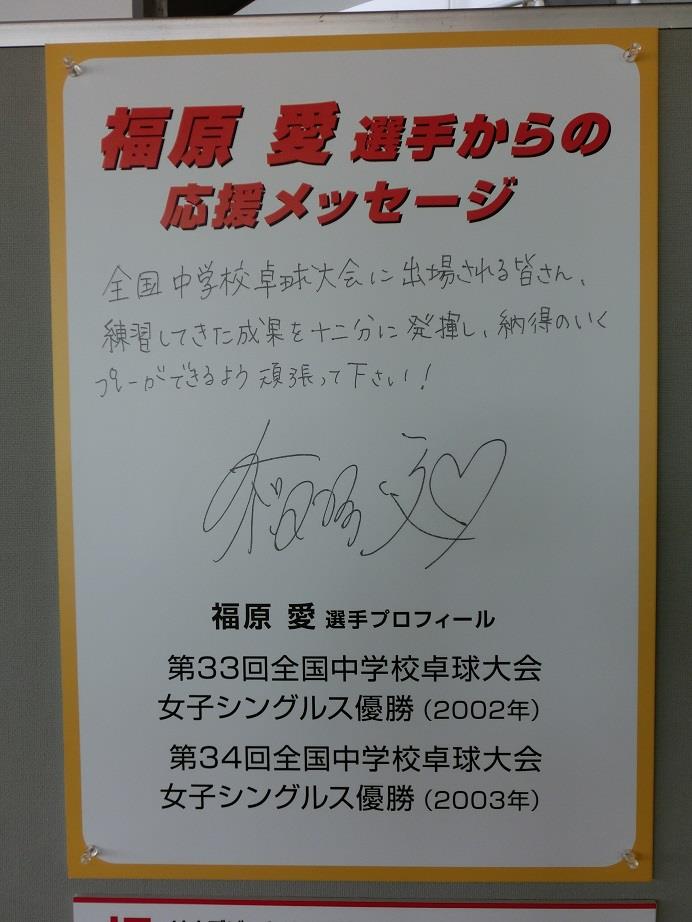 福原 愛 選手からの
応援メッセージ
全国中学校卓球大会に出場される皆さん、
練習してきた成果を十二分に発揮し、納得のいく
プレーができるよう頑張って下さい!
福原 愛 選手プロフィール
第33回全国中学校卓球大会
女子シングルス優勝(2002年)
第34回全国中学校卓球大会
女子シングルス優勝(2003年)